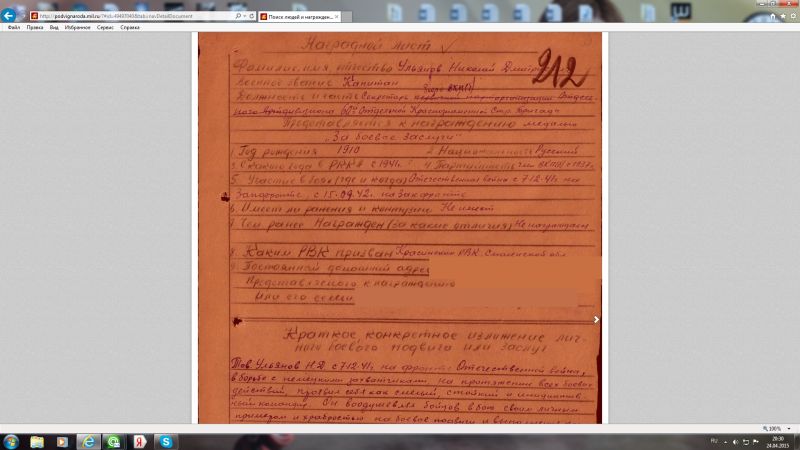 http://podvignaroda.mil.ru/?#id=
tab=navDetailDocument
Поиск людей и награжден...
Файл Правка Вид Избранное Сервис Справка
Наградной лист
212
Фамилия, имя, отчество Ульянов Николай
Военное звание Капитан
Бюро ВКП(б)
Должность и часть Секретарь
Артдивизиона 60й Отдельной Краснознаменной Стр. бригады
Представляется к награждению медалью
„За боевые заслуги"
1. Год рождения 1910 2. Национальность Русский
3. С какого года в РККА с 1941г. 4. Партийность чл. ВКП(б) с
5. Участие в боях (где и когда) Отечественная война с 7.12.41г. на
Запфронте, с 15.09.42г. на Закфронте
6. Имеет ли ранения и контузии Не имеет
7. Чем ранее Награжден (за какие отличия) Не награжден
8. Каким РВК призван Краснинским РВК, Смоленской обл.
9. Постоянный домашний адрес
Представляемого к награждению
или его семьи
Краткое конкретное изложение лич-
ного боевого подвига или заслуг
Тов. Ульянов Н.Д. с 7.12.41г. на фронте Отечественной войны,
в борьбе с немецкими захватчиками на протяжении всех боевых
действий, проявил себя как смелый, стойкий и инициатив-
ный командир. Он воодушевлял бойцов в бою своим личным
примером и храбростью на боевые подвиги и
100%
RU
20:30
24.04.2015